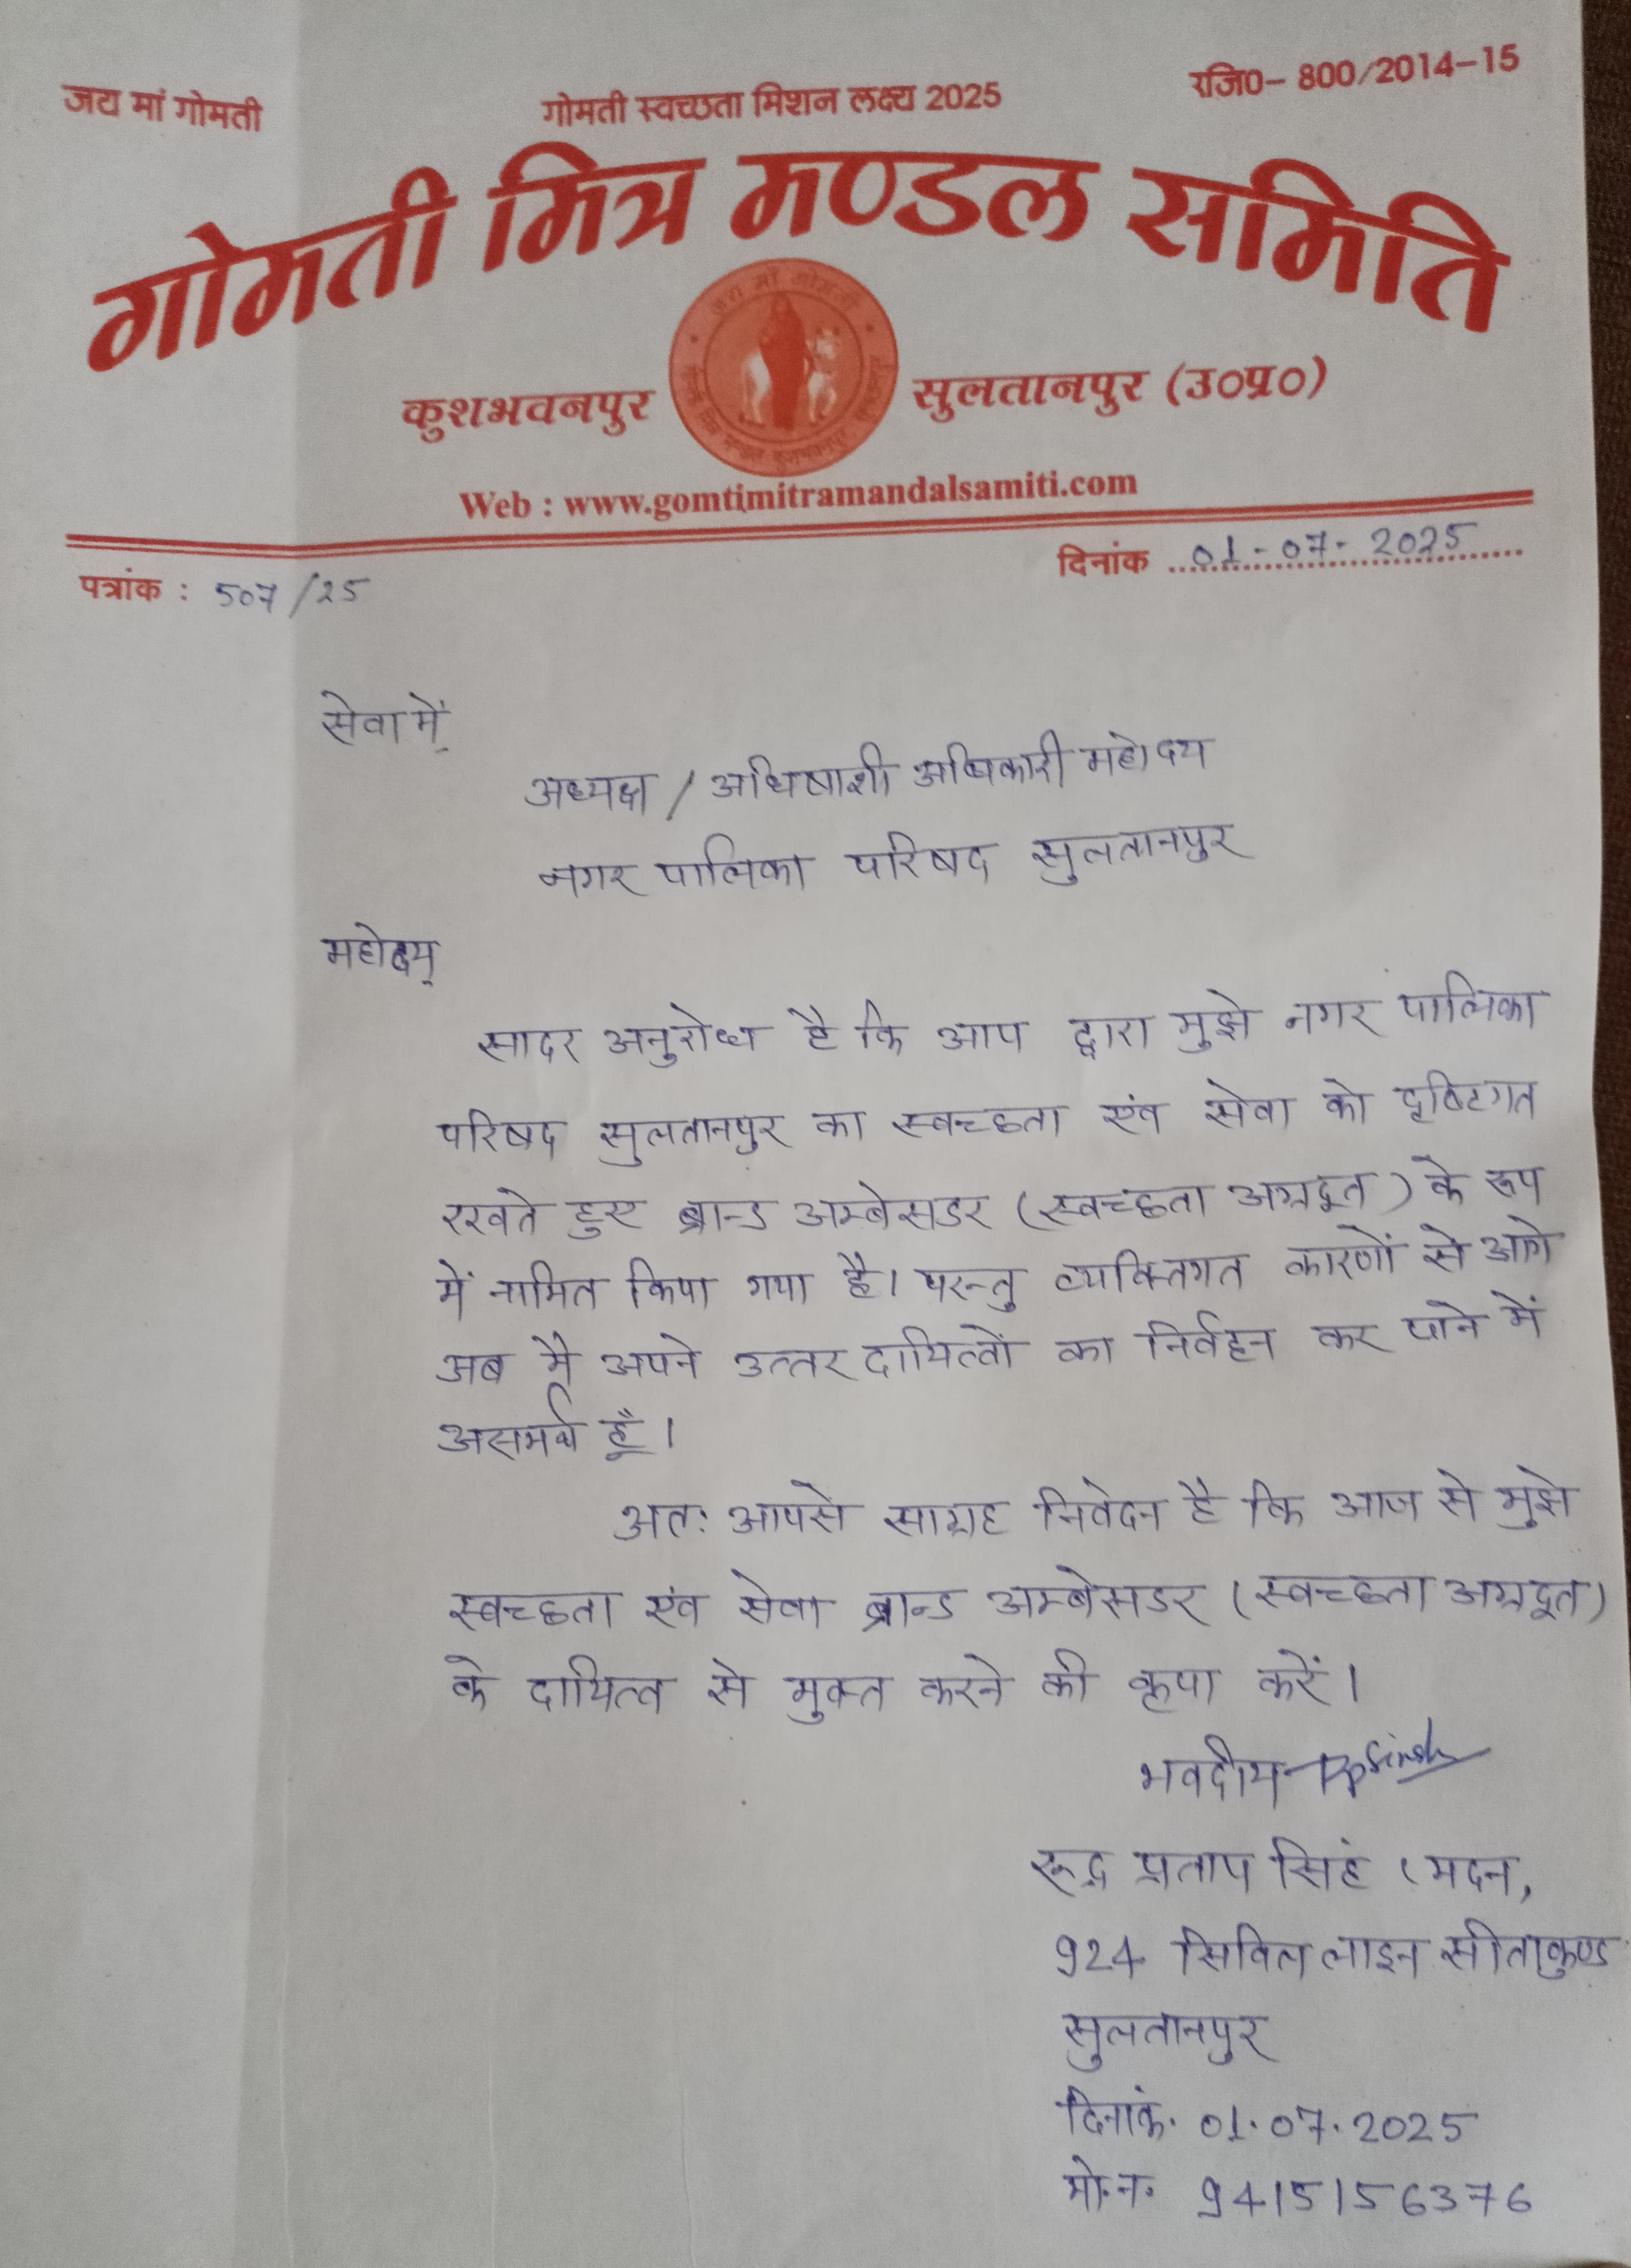 जय मां गोमती
गोमती स्वच्छता मिशन लक्ष्य 2025
रजि0- 800/2014-15
गोमती मित्र मण्डल समिति
कुशभवनपुर
जय मां गोमती
सुलतानपुर (उ०प्र०)
Web : www.gomtimitramandalsamiti.com
दिनांक 01-07-2025
पत्रांक : 507/25
सेवा में,
अध्यक्ष / अधिषाशी अधिकारी महोदय
नगर पालिका परिषद सुलतानपुर
महोदय,
सादर अनुरोध है कि आप द्वारा मुझे नगर पालिका
परिषद सुलतानपुर का स्वच्छता एंव सेवा को दृष्टिगत
रखते हुए ब्रान्ड अम्बेसडर (स्वच्छता अग्रदूत) के रूप
में नामित किया गया है। परन्तु व्यक्तिगत कारणों से आगे
अब मै अपने उत्तरदायित्वों का निर्वहन कर पाने में
असमर्थ हूँ।
अतः आपसे साग्रह निवेदन है कि आज से मुझे
स्वच्छता एंव सेवा ब्रान्ड अम्बेसडर (स्वच्छता अग्रदूत)
के दायित्व से मुक्त करने की कृपा करें।
भवदीय RPSingh
रूद्र प्रताप सिहं (मदन,
924 सिविल लाइन सीताकुण्ड
सुलतानपुर
दिनांक. 01.07.2025
मो.न. 9415156376